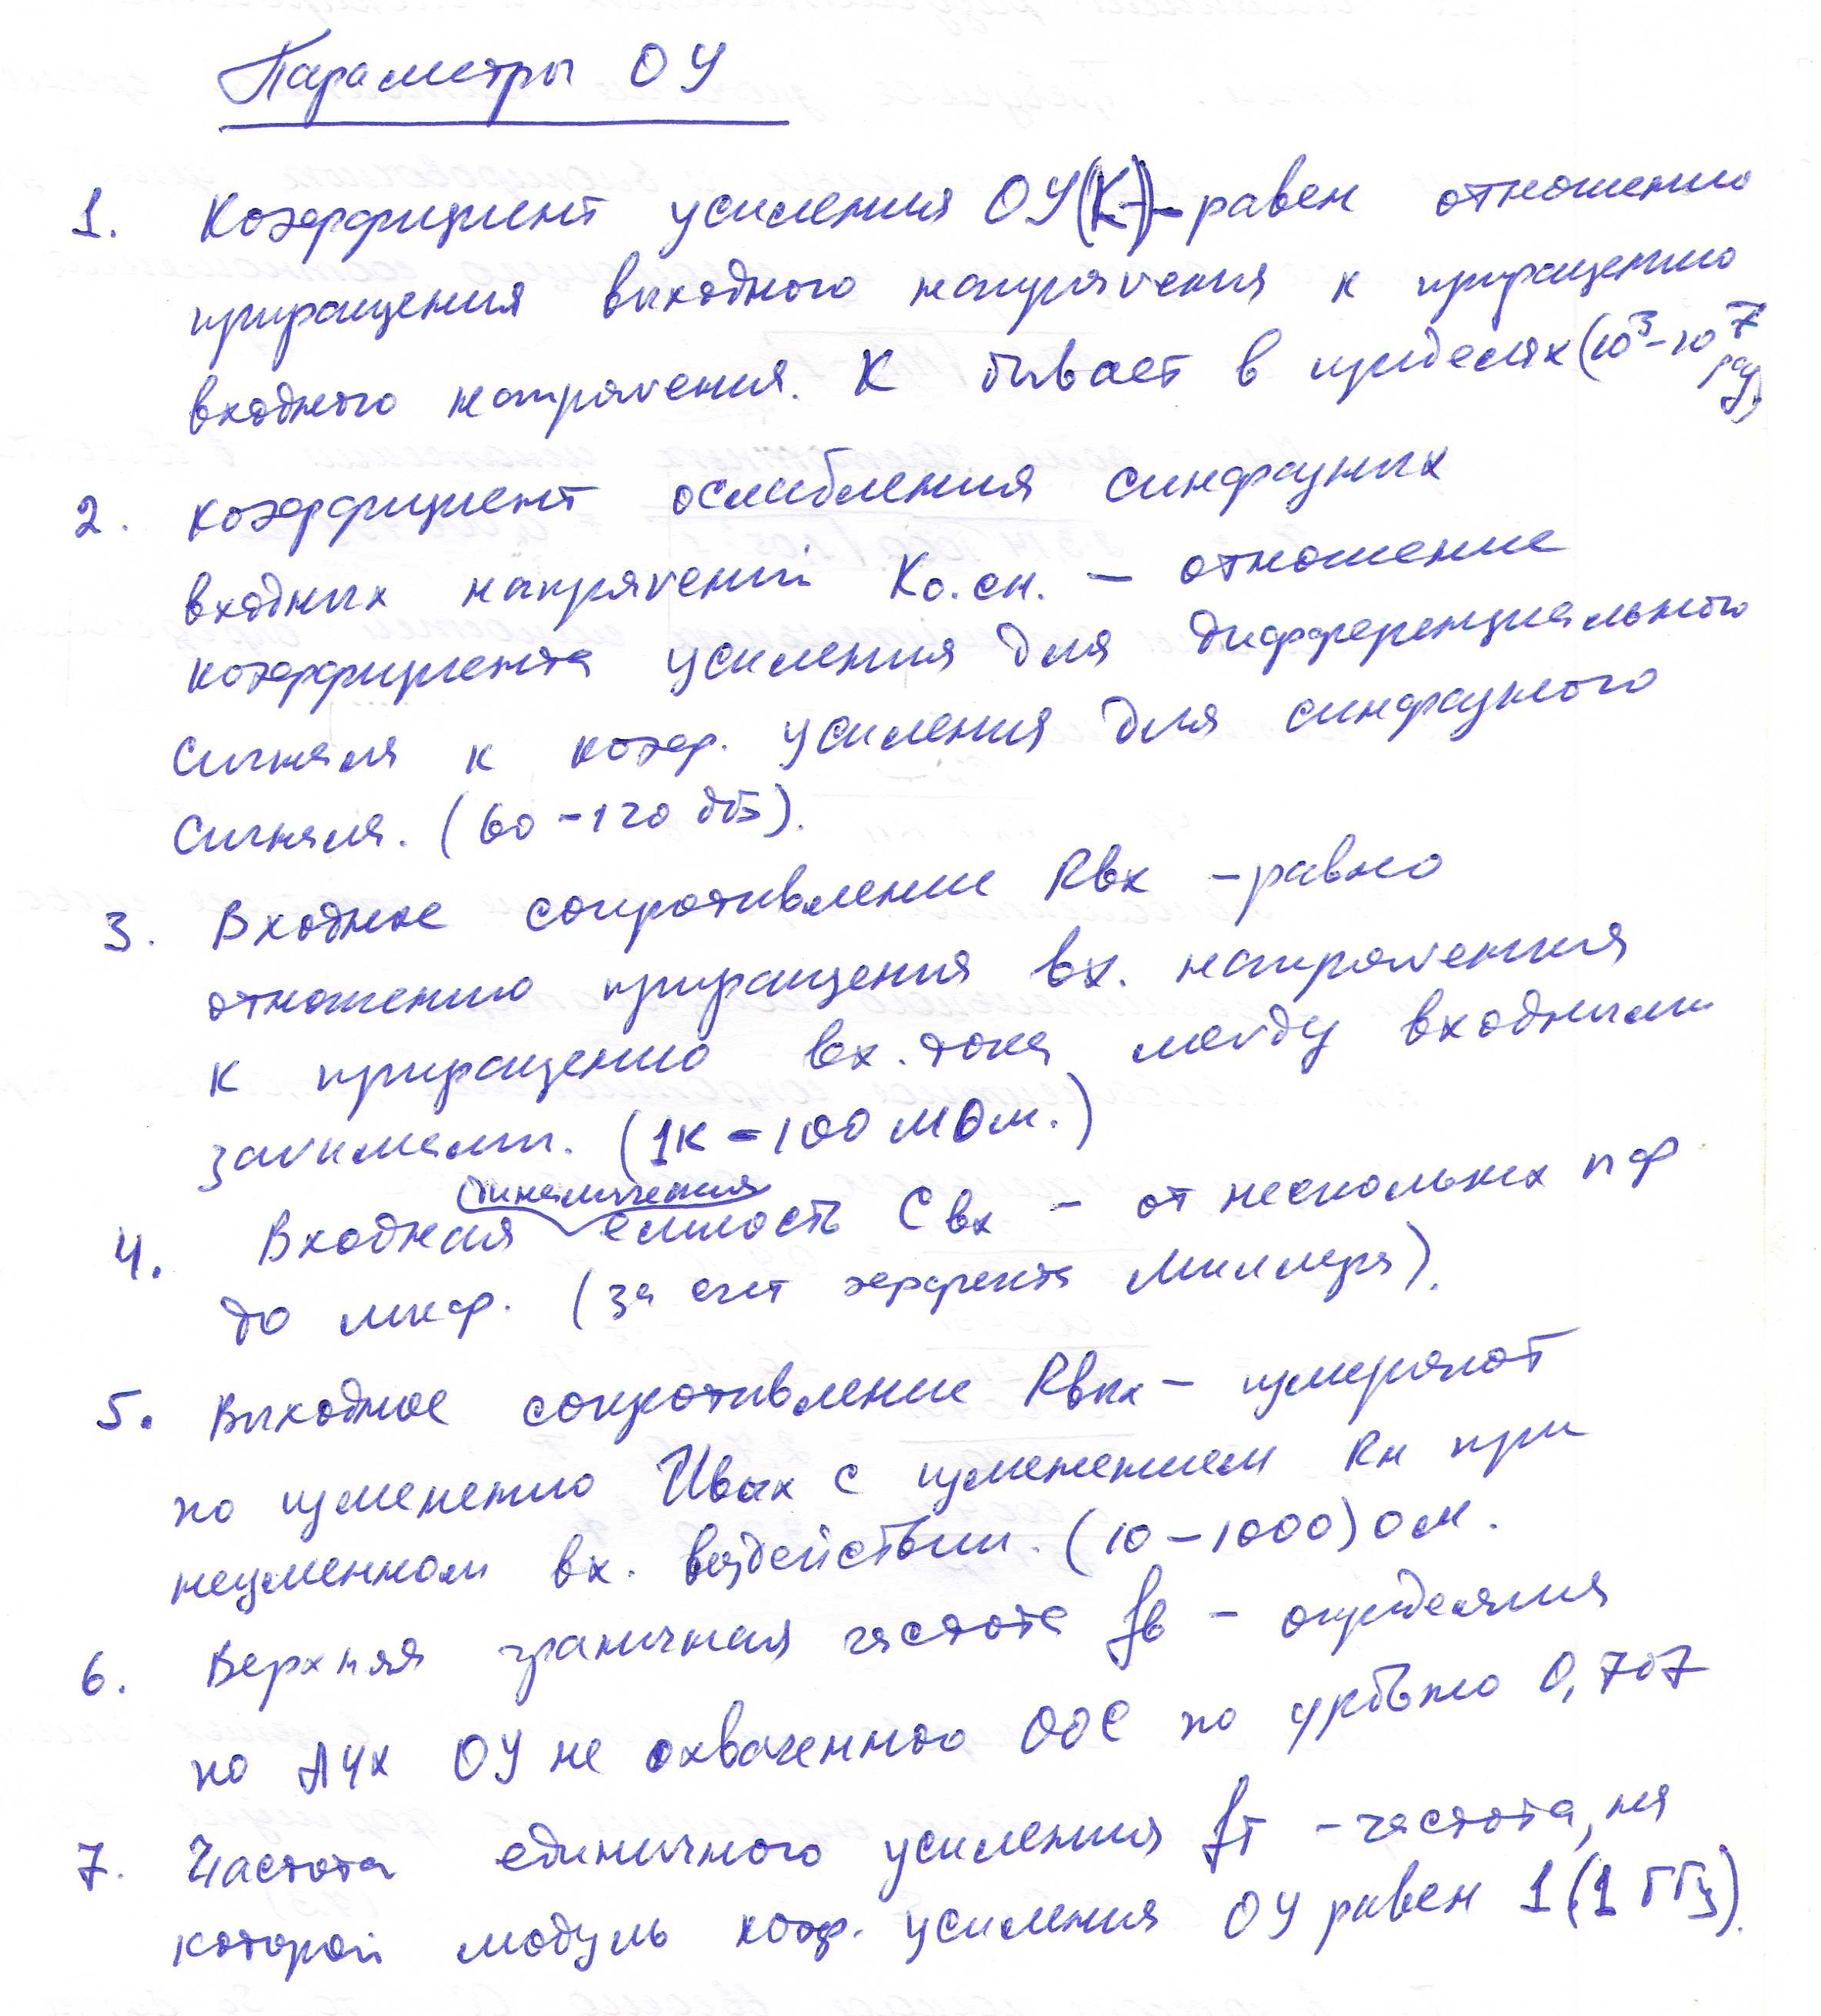 Параметры ОУ
1. Коэффициент усиления ОУ(К)-равен отношению
приращения выходного напряжения к приращению
входного напряжения. К бывает в пределях (10³-10⁷
раз)
2. коэффициент ослабления синфазных
входных напряжений Ко.сн. - отношение
коэффициента усиления для дифференциального
сигнала к коэф. усиления для синфазного
сигнала. (60-120 дБ).
3. Входное сопротивление Rвх -равно
отношению приращения вх. напряжения
к приращению вх. тока между входными
зажимами. (1к-100 МОм.)
динамическая
4. Входная емкость Свх - от нескольких пф
до мкф. (за счет эффекта Миллера).
5. Выходное сопротивление Rвых - измеряют
по изменению Uвых с изменением Rн при
неизменном вх. воздействии. (10-1000) Ом.
6. Верхняя граничная частота fв - определяния
по АЧХ ОУ не охваченного ООС по уровню 0,707
7. Частота единичного усиления fт - частота, на
которой модуль коэф. усиления ОУ равен 1 (1 ГГц).